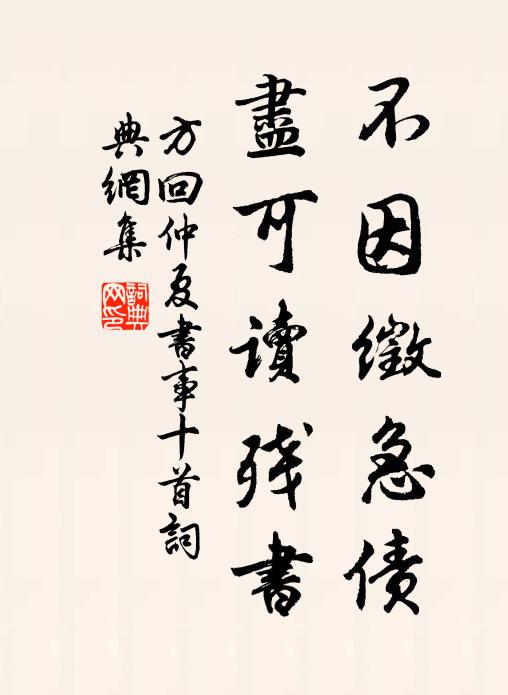 不因徵急債
盡可讀殘書
方回仲夏書事十首詞
典網集
詞典網印